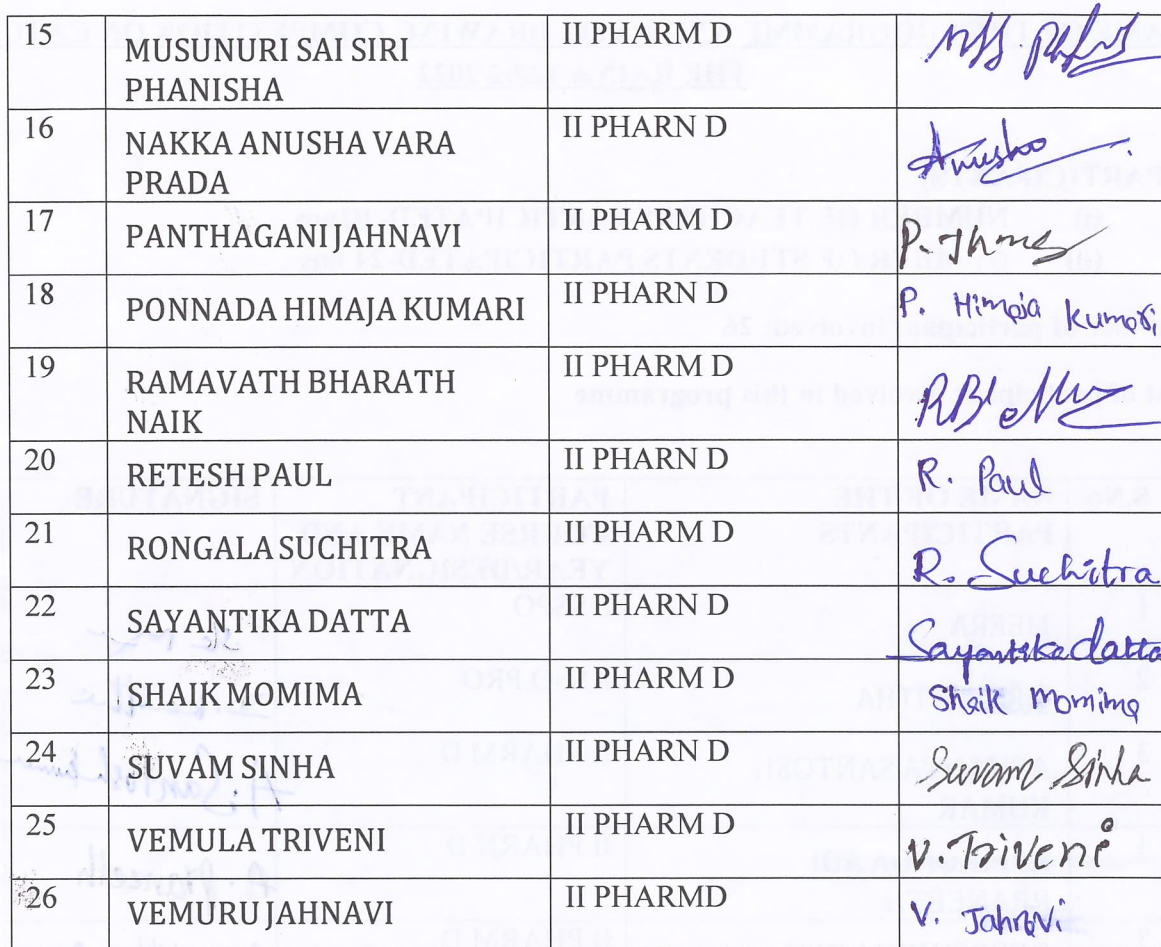 15 MUSUNURI SAI SIRI PHANISHA II PHARM D
16 NAKKA ANUSHA VARA PRADA II PHARN D Anusha
17 PANTHAGANI JAHNAVI II PHARM D
18 PONNADA HIMAJA KUMARI II PHARN D P. Himaja Kumari
19 RAMAVATH BHARATH NAIK II PHARM D
20 RETESH PAUL II PHARN D R. Paul
21 RONGALA SUCHITRA II PHARM D R. Suchitra
22 SAYANTIKA DATTA II PHARN D Sayantika datta
23 SHAIK MOMIMA II PHARM D Shaik Momima
24 SUVAM SINHA II PHARN D Suvam Sinha
25 VEMULA TRIVENI II PHARM D V. Triveni
26 VEMURU JAHNAVI II PHARMD V. Jahnavi